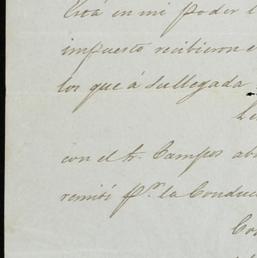 Está en mi poder l
impuesto recibieron e
los que á su llegada
con el Sr. Campos ab
remití pr. la Conduc
Co